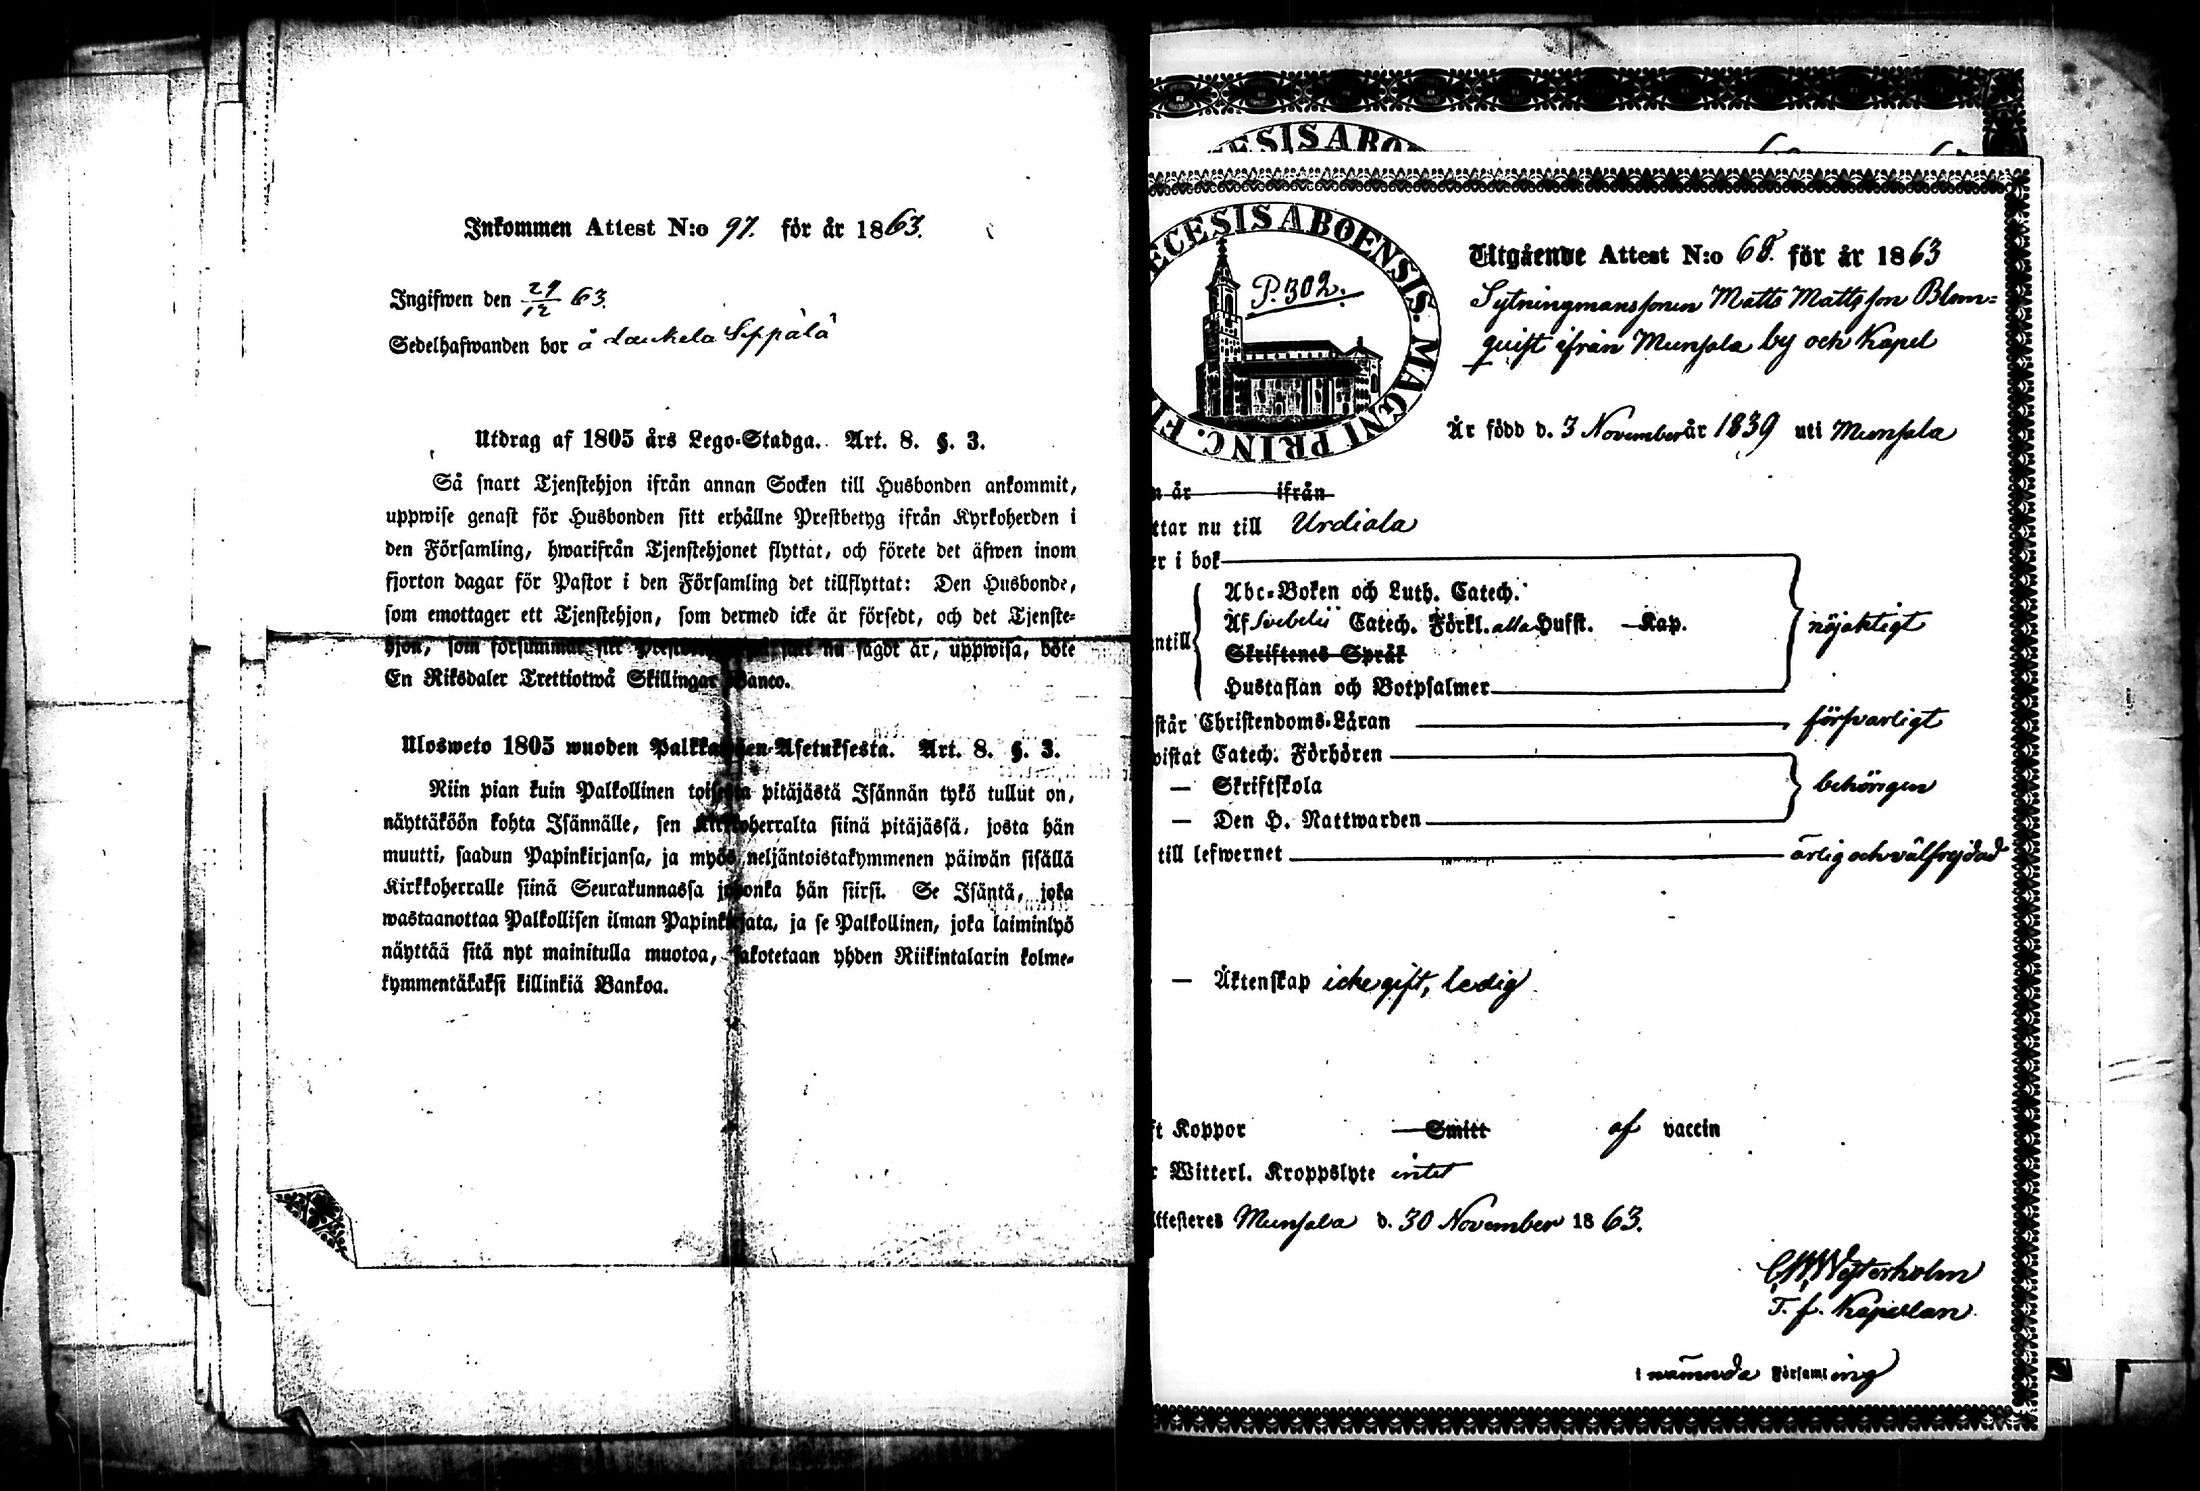 Inkommen Attest N:o 97. för år 1863.
Ingifwen den 29/12 63.
Sedelhafwanden bor å Laukela Seppälä
Utdrag af 1805 års Lego-Stadga. Art. 8. §. 3.
Så snart Tjenstehjon ifrån annan Socken till Husbonden ankommit,
uppwise genast för Husbonden sitt erhållne Prestbetyg ifrån Kyrkoherden i
den Församling, hwarifrån Tjenstehjonet flyttat, och förete det äfwen inom
fjorton dagar för Pastor i den Församling det tillflyttat: Den Husbonde,
som emottager ett Tjenstehjon, som dermed icke är försedt, och det Tjenste-
hjon, som försummar sitt nu sagdt är, uppwisa, böte
En Riksdaler Trettiotwå Skillingar Banco.
Ulosweto 1805 wuoden Asetuksesta. Art. 8. §. 3.
Niin pian kuin Palkollinen toisesta pitäjästä Isännän tykö tullut on,
näyttäköön kohta Isännälle, sen Kirkkoherralta siinä pitäjässä, josta hän
muutti, saadun Papinkirjansa, ja myös neljäntoistakymmenen päiwän sisällä
Kirkkoherralle siinä Seurakunnassa johonka hän siirsi. Se Isäntä, joka
wastaanottaa Palkollisen ilman Papinkirjata, ja se Palkollinen, joka laiminlyö
näyttää sitä nyt mainitulla muotoa, sakotetaan yhden Riikintalarin kolme-
kymmentäkaksi killinkiä Bankoa.
ESIS ABO
ECESIS ABOENSIS. MAGNI PRINC. F
P. 302.
Utgående Attest N:o 68. för år 1863
Sytningmanssonen Matts Mattsson Blom=
quist ifrån Munsala by och Kapel
Är född d. 3 November år 1839 uti Munsala
n år ifrån
ttar nu till Urdiala
er i bok
Abc-Boken och Luth. Catech.
Af Svebelii Catech. Förkl. alla Hufst. Kap. nöjaktigt
ntill
Skriftenes Språk
Hustaflan och Botpsalmer
står Christendoms-Läran försvarligt
vistat Catech. Förhören
— Skriftskola behörigen
— Den H. Nattwarden
till lefwernet ärlig och välfrejdad
— Äktenskap icke gift, ledig
ft Koppor Smitt af vaccin
r Witterl. Kroppslyte intet
Attesteres Munsala d. 30 November 1863.
Westerholm
T. f. Kapellan
i nämnda Församling